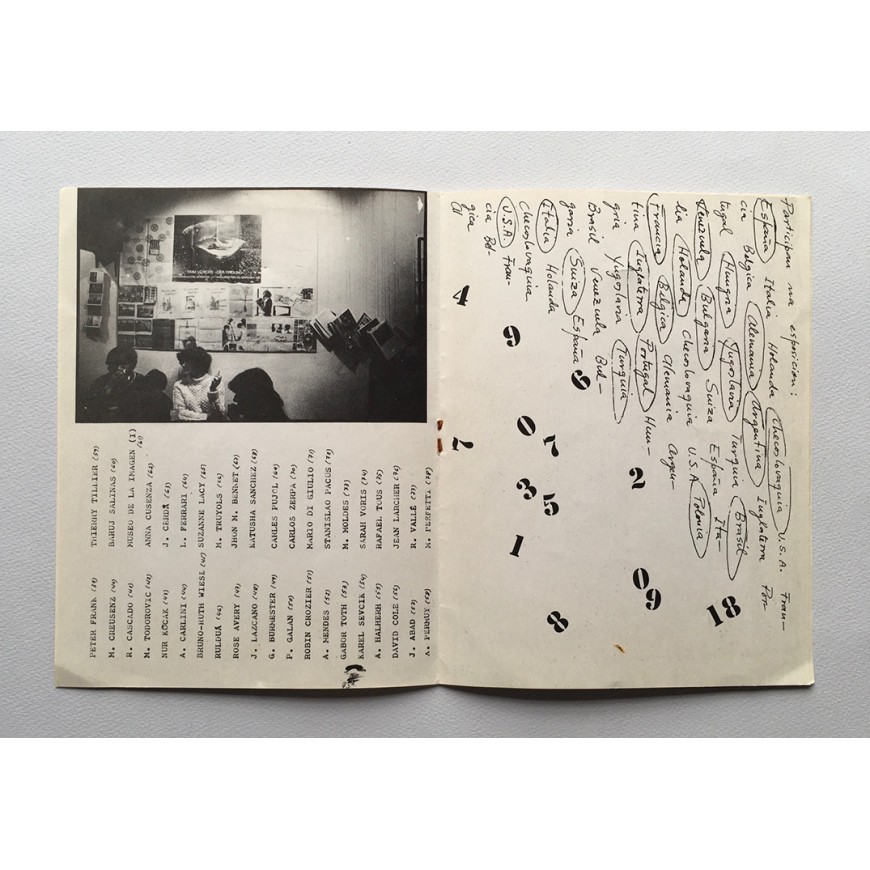 PETER FRANK
M. CREUSENZ
R. CASCADO
M. TODOROVIC
NUR KOCAK
A. CARLINI
BRUNO-RUTH WIESL
RULDUÁ
ROSE AVERY
J. LAZCANO
G. BURMESTER
P. GALAN
ROBIN CROZIER
A. MENDES
GABOR TOTH
KAREL SEVCIK
A. HALBERH
DAVID COLE
J. ABAD
A. PERNUY
THIERRY TILLIER
BARUJ SALINAS
MUSEO DE LA IMAGEN (I)
ANNA CUSENZA
J. CERDÀ
L. FERRARI
SUZANNE LACY
M. TRUYOLS
JHON M. BENNET
KATUSHA SANCHEZ
CARLES PUJOL
CARLOS ZERPA
MARIO DI GIULIO
STANISLAO PACUS
M. MOLDES
SARAH VORIS
RAFAEL TOUS
JEAN LARCHER
R. VALLÉ
M. PERFETTA
Participan na esposición:
España Italia Holanda Checoslovaquia U.S.A. Fran-
cia Bélgica Alemania Argentina Inglaterra Por-
tugal Hungria Yugoslavia Turquía Brasil
Venezuela Bulgaria Suiza España Ita-
lia Holanda Checoslovaquia U.S.A. Polonia
Francia Bélgica Alemania Argen-
tina Inglaterra Portugal Hun-
gria Yugoslavia Turquía
Brasil Venezuela Bul-
garia Suiza España
Italia Holanda
Checoslovaquia
U.S.A. Fran-
cia Bél-
gica
Al
4
9
9
0
70
2
7
35
1
09
8
18